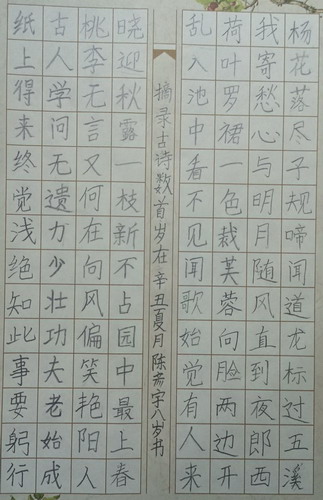 杨花落尽子规啼闻道龙标过五溪
我寄愁心与明月随风直到夜郎西
荷叶罗裙一色裁芙蓉向脸两边开
乱入池中看不见闻歌始觉有人来
摘录古诗数首岁在辛丑夏月陈宇八岁书
晓迎秋露一枝新不占园中最上春
桃李无言又何在向风偏笑艳阳人
古人学问无遗力少壮功夫老始成
纸上得来终觉浅绝知此事要躬行